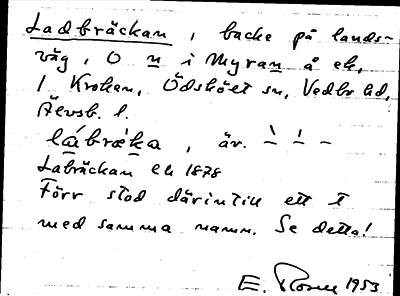 Ladbräckan, backe på lands-
väg, O n i Myran å ek,
1 Kroken, Ödskölt sn, Vedbo hd,
Älvsb. l.
lá̱bræ̀ka, äv. ̀ – ́ –
Labräckan ek 1878
Förr stod därintill ett t
med samma namn. Se detta!
E. 1953